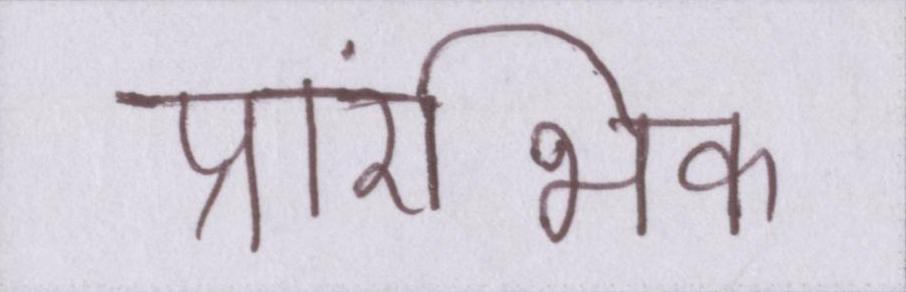 प्रांरभिक